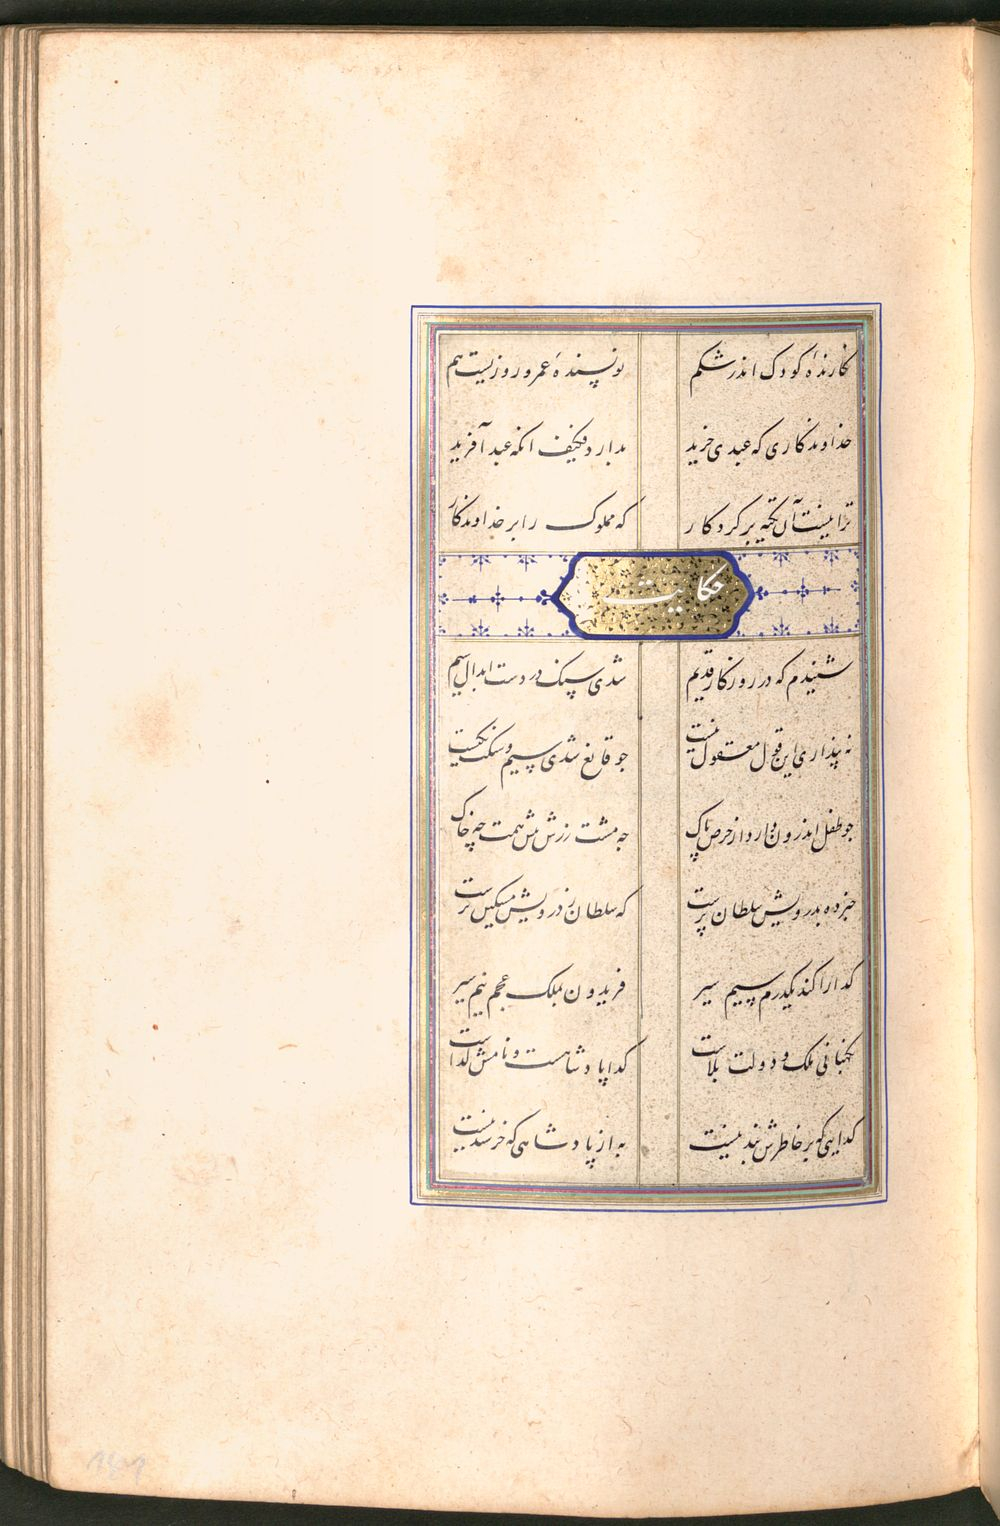 نکارندهٔ کودک اندر شکم نویسندهٔ عمر و روزیست هم
خداوندکاری که عبدی خرید بدارد فکیف آنکه عبد آفرید
ترا نیست آن تکیه بر کردکار که مملوک را بر خداوندکار
حکایت
شنیدم که در روزکار قدیم شدی سنک در دست ابدال سیم
نه پنداری این قول معقول نیست چو قانع شدی سیم و سنکت یکیست
چو طفل اندرون دارد از حرص پاک چه مشت زرش پیش همت چه خاک
خبر ده بدرویش سلطان پرست که سلطان ز درویش مسکین ترست
کدا را کند یکدرم سیم سیر فریدون بملک عجم نیم سیر
نکهبانی ملک و دولت بلاست کدا پادشاهست و نامش کداست
کدایی که بر خاطرش بند نیست به از پادشاهی که خرسند نیست